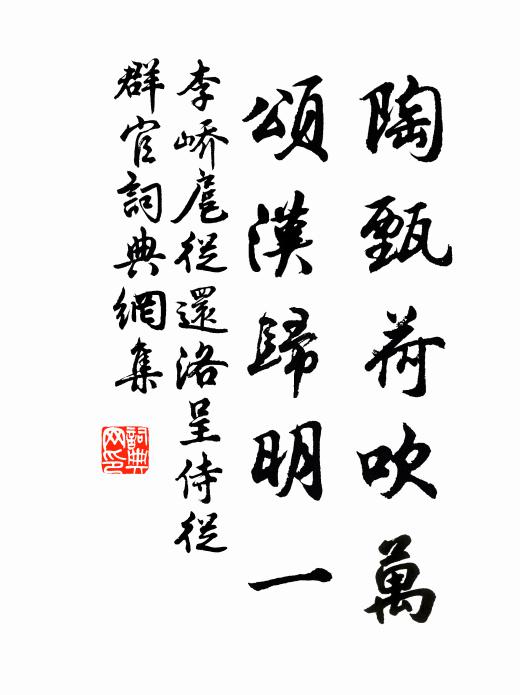 陶甄荷吹萬
頌漢歸明一
李嶠扈從還洛呈侍從
群官詞典網集
詞典网印